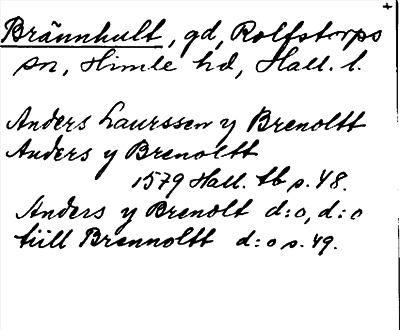 Brännhult, gd, Rolfstorps
sn, Himle hd, Hall. l.
Anders Laurssen y Brenoltt
Anders y Brenoltt
1579 Hall. tb s. 48.
Anders y Brenolt d:o, d:o
tiill Brennoltt d:o s. 49.